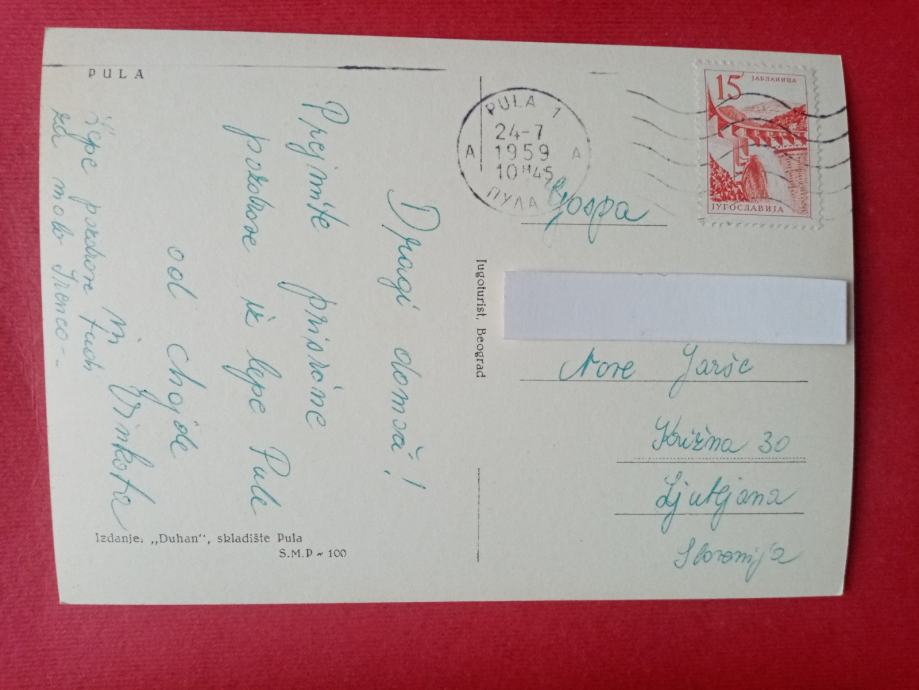 PULA
Dragi domači!
Prejmite prisrčne
pozdrave iz lepe Pule
od
in Vinkota
Lepe pozdrave tudi
za malo Ireno.
Izdanje: „Duhan“, skladište Pula
S.M.P ~ 100
Jugoturist, Beograd
PULA 1
24-7
1959
10 H45
A A
ПУЛА
15
ЈАБЛАНИЦА
ЈУГОСЛАВИЈА
Gospa
Nove Jarše
Križna 30
Ljubljana
Slovenija